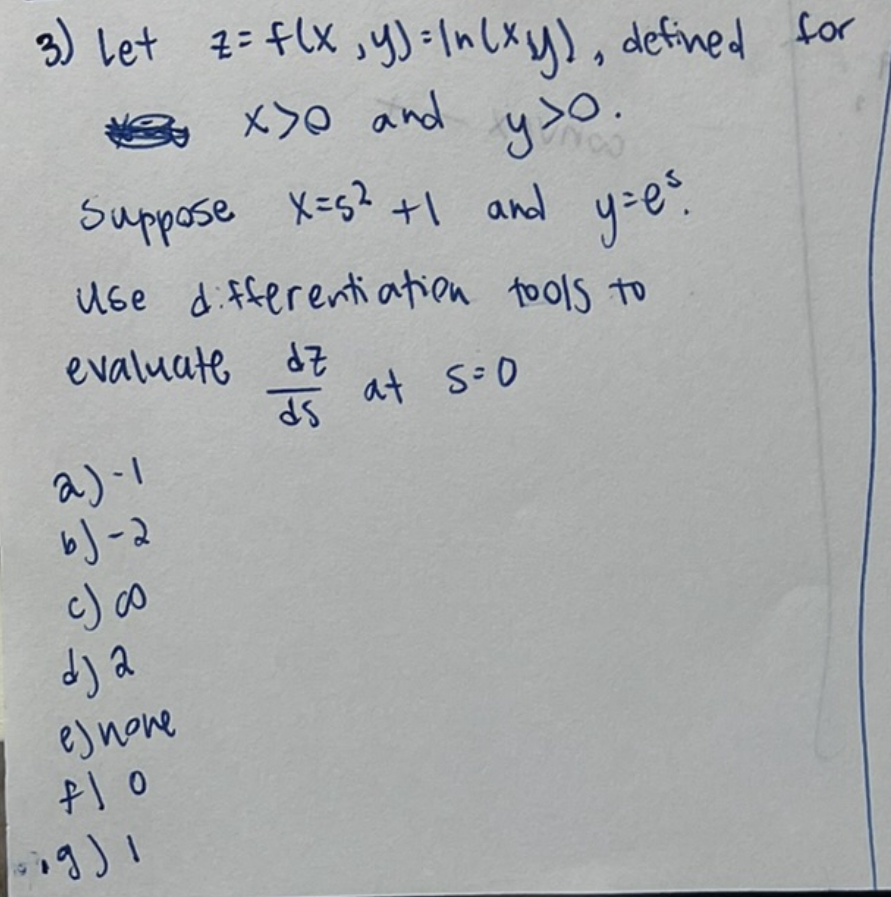 3) Let z=f(x,y)=ln(xy), defined for
x>0 and y>0.
Suppose x=s²+1 and y=eˢ.
Use differentiation tools to
evaluate dz/ds at s=0
a) -1
b) -2
c) ∞
d) 2
e) none
f) 0
g) 1